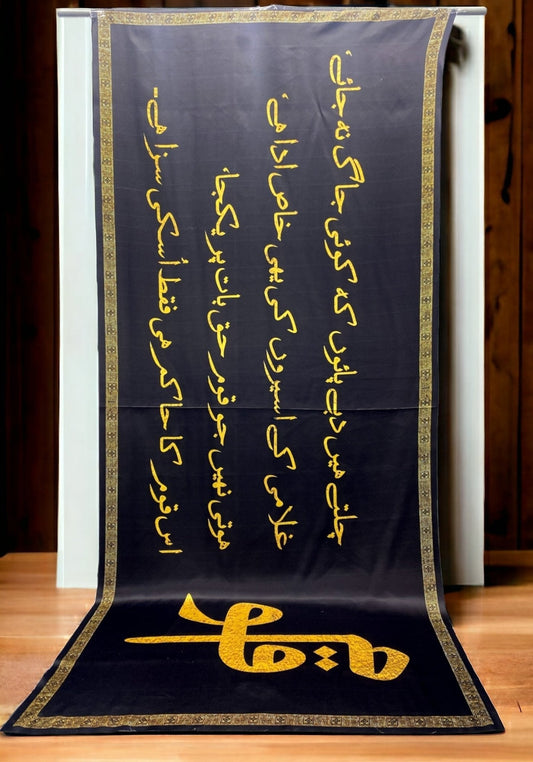 چلتے ھیں دبے پائوں کہ کوئی جاگ نہ جائے،
غلامی کے اسیروں کی یہی خاص ادا ھے،
ھوتی نہیں جو قوم حق بات پر یکجا،
اس قوم کا حاکم ھی فقط اُسکی سزا ھے۔